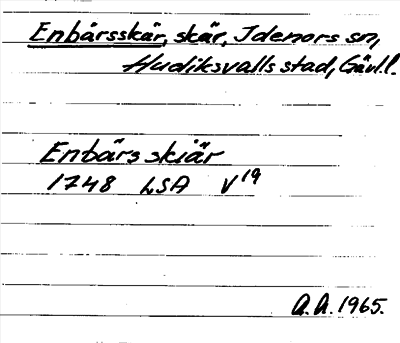 Enbärsskär, skär, Idenors sn,
Hudiksvalls stad, Gävl.l.
Enbärs skiär
1748 LSA V19
A.A. 1965.